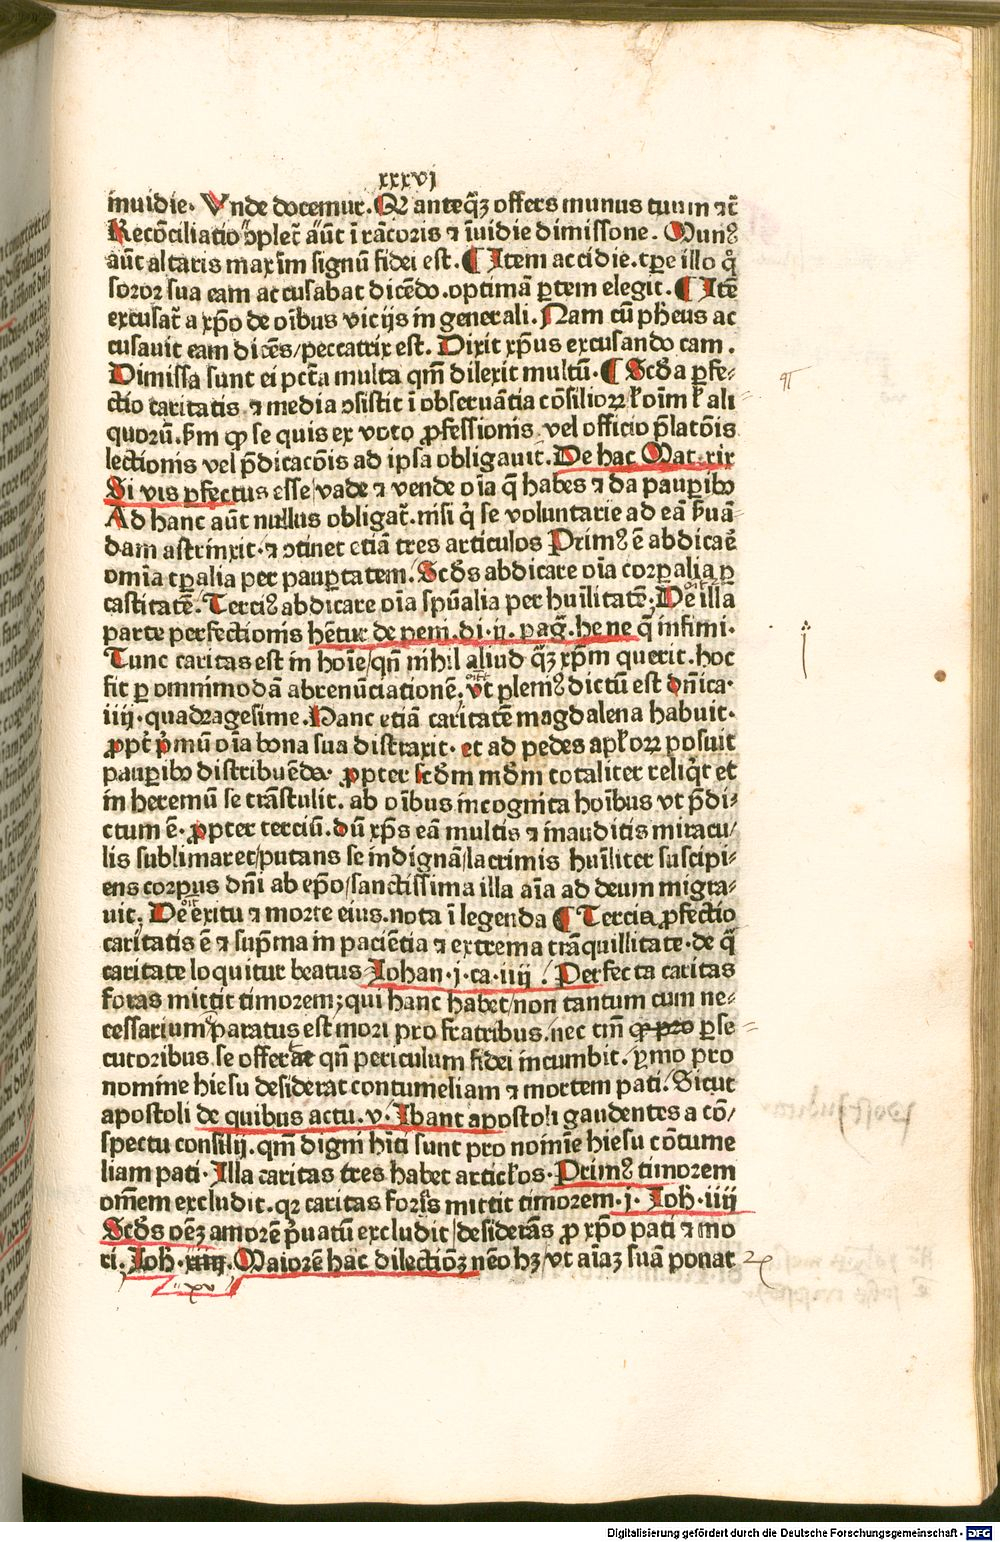 xxxvj
inuidie. Vnde docemur. Qꝛ anteqꝫ offers munus tuum ⁊cͣ
Recōciliatio ꝯpleƈ aūt ī rācoris ⁊ īuidie dimissone. Munꝰ
aūt altaris maxīm signū fidei est. ¶ Item accidie. tꝑe illo qͦ
soror sua eam accusabat dicēdo. optimā ꝑtem elegit. ¶ Itē
excusat̄ a xp̄o de oībus vicijs in generali. Nam cū pheus ac
cusauit eam dicēs/peccatrix est. Dixit xp̄us excusando eam.
Dimissa sunt ei pctā multa qm̄ dilexit multū. ¶ Scd̄a ꝑfe⸗
ctio caritatis ⁊ media ꝯsistit ī obseruātia cōsilioꝝ ł oīm ł ali
quorū. ẜm ꝙ se quis ex voto ꝓfessionis vel officio p̄latōis
lectionis vel p̄dicacōis ad ipsa obligauit. De hac Mat. xix
Si vis ꝑfectus esse/vade ⁊ vende oīa q̄ habes ⁊ da pauꝑibꝰ
Ad hanc aūt nullus obligat̄. nisi q̇ se voluntarie ad eā ẜuā⸗
dam astrinxit. ⁊ ꝯtinet etiā tres articulos Primꝰ ē abdicaē
omīa tꝑalia per pauꝑtatem. Scd̄s abdicare oīa corꝑalia ꝑ
castitatē. Terciꝰ abdicare oīa spūalia per huīlitatē. De illa
parte perfectionis hētur de peni. di. ij. pag̃. hene q̄ infimi.
Tunc caritas est in hoīe/qn̄ nihil aliud qꝫ xp̄m querit. hoc
fit ꝑ omnimodā abrenūciationē. vt ꝑlemꝰ dictū est dn̄ica.
iiij. quadragesime. Hanc etiā caritatē magdalena habuit.
ꝓpt̄ pͥmū oīa bona sua distraxit. et ad pedes apłoꝝ posuit
pauꝑibꝰ distribuēda. ꝓpter scd̄m md̄m totaliter reliq̇t et
in heremū se trāstulit. ab oībus incognita hoībus vt p̄di⸗
ctum ē. ꝓpter terciū. dū xp̄s eā multis ⁊ inauditis miracu/
lis sublimaret/putans se indignā/lacrimis huīliter suscipi⸗
ens corpus dn̄i ab ep̄o/sanctissima illa aīa ad deum migra⸗
uit. De exitu ⁊ morte eius. nota ī legenda ¶ Tercia ꝑfectio
caritatis ē ⁊ sup̄ma in paciētia ⁊ extrema trāquillitate. de q̄
caritate loquitur beatus Iohan. j. ca. iiij. Perfecta caritas
foras mittit timorem; qui hanc habet/non tantum cum ne⸗
cessarium paratus est mori pro fratribus. nec tm̄ ꝙ pro ꝑse⸗
cutoribus se offerat qn̄ periculum fidei incumbit. ymo pro
nomine hiesu desiderat contumeliam ⁊ mortem pati. Sicut
apostoli de quibus actu. v. Ibant apostoli gaudentes a cō/
spectu consilij. qm̄ digni hīti sunt pro nomīe hiesu cōtume
liam pati. Illa caritas tres habet articłos. Primꝰ timorem
omēm excludit. qꝛ caritas foras mittit timorem. j. Ioh. iiij
Scd̄s oēꝫ amorē p̄uatū excludit/desiderās ꝓ xp̄o pati ⁊ mo
ri. Ioh. xiiij. Maiorē hac dilectiōꝫ nēo hꝫ/vt aīaꝫ suā ponat
xv
Digitalisierung gefördert durch die Deutsche Forschungsgemeinschaft - DFG